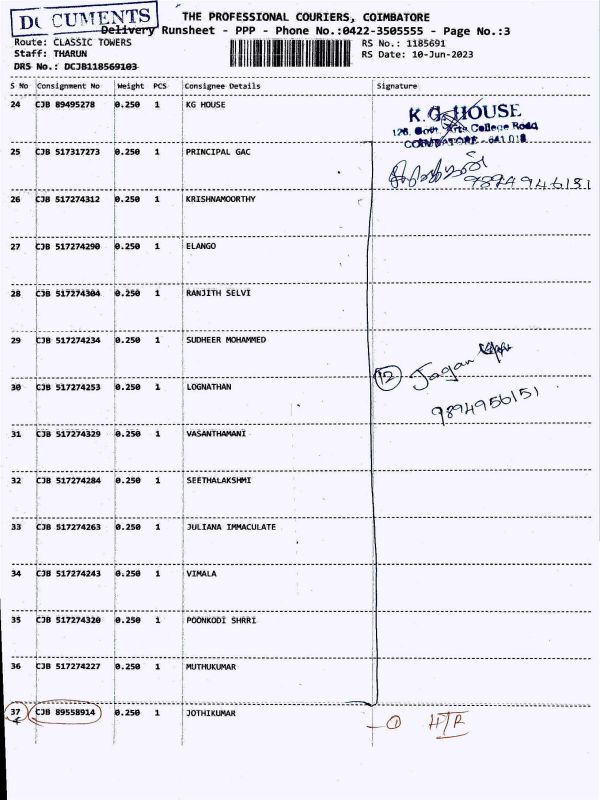 DOCUMENTS
THE PROFESSIONAL COURIERS, COIMBATORE
Delivery Runsheet - PPP - Phone No.:0422-3505555 - Page No.:3
Route: CLASSIC TOWERS
RS No.: 1185691
Staff: THARUN
RS Date: 10-Jun-2023
DRS No.: DCJB118569103
S No Consignment No Weight PCS Consignee Details Signature
24 CJB 89495278 0.250 1 KG HOUSE
K.G. HOUSE
126, Govt. Arts College Road
COIMBATORE - 641 018
25 CJB 517317273 0.250 1 PRINCIPAL GAC
9894946131
26 CJB 517274312 0.250 1 KRISHNAMOORTHY
27 CJB 517274290 0.250 1 ELANGO
28 CJB 517274304 0.250 1 RANJITH SELVI
29 CJB 517274234 0.250 1 SUDHEER MOHAMMED
12 Jagan
30 CJB 517274253 0.250 1 LOGNATHAN
9894956151
31 CJB 517274329 0.250 1 VASANTHAMANI
32 CJB 517274284 0.250 1 SEETHALAKSHMI
33 CJB 517274263 0.250 1 JULIANA IMMACULATE
34 CJB 517274243 0.250 1 VIMALA
35 CJB 517274320 0.250 1 POONKODI SHRRI
36 CJB 517274227 0.250 1 MUTHUKUMAR
37 CJB 89558914 0.250 1 JOTHIKUMAR
1 HTR